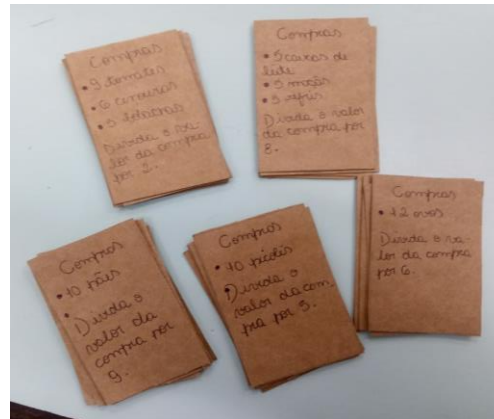 Compras
• 9 tomates
• 6 cenouras
• 5
Divida o va-
lor da compra
por
Compras
• 5 caixas de
leite
• 5 maçãs
• 5 refris
Divida o valor
da compra por
8.
Compras
• 10 pães
•
Divida o
valor da
compra por
9.
Compras
• 10 picolés
• Divida o
valor da com
pra por 5.
Compras
• 12 ovos
Divida o va-
lor da compra
por 6.